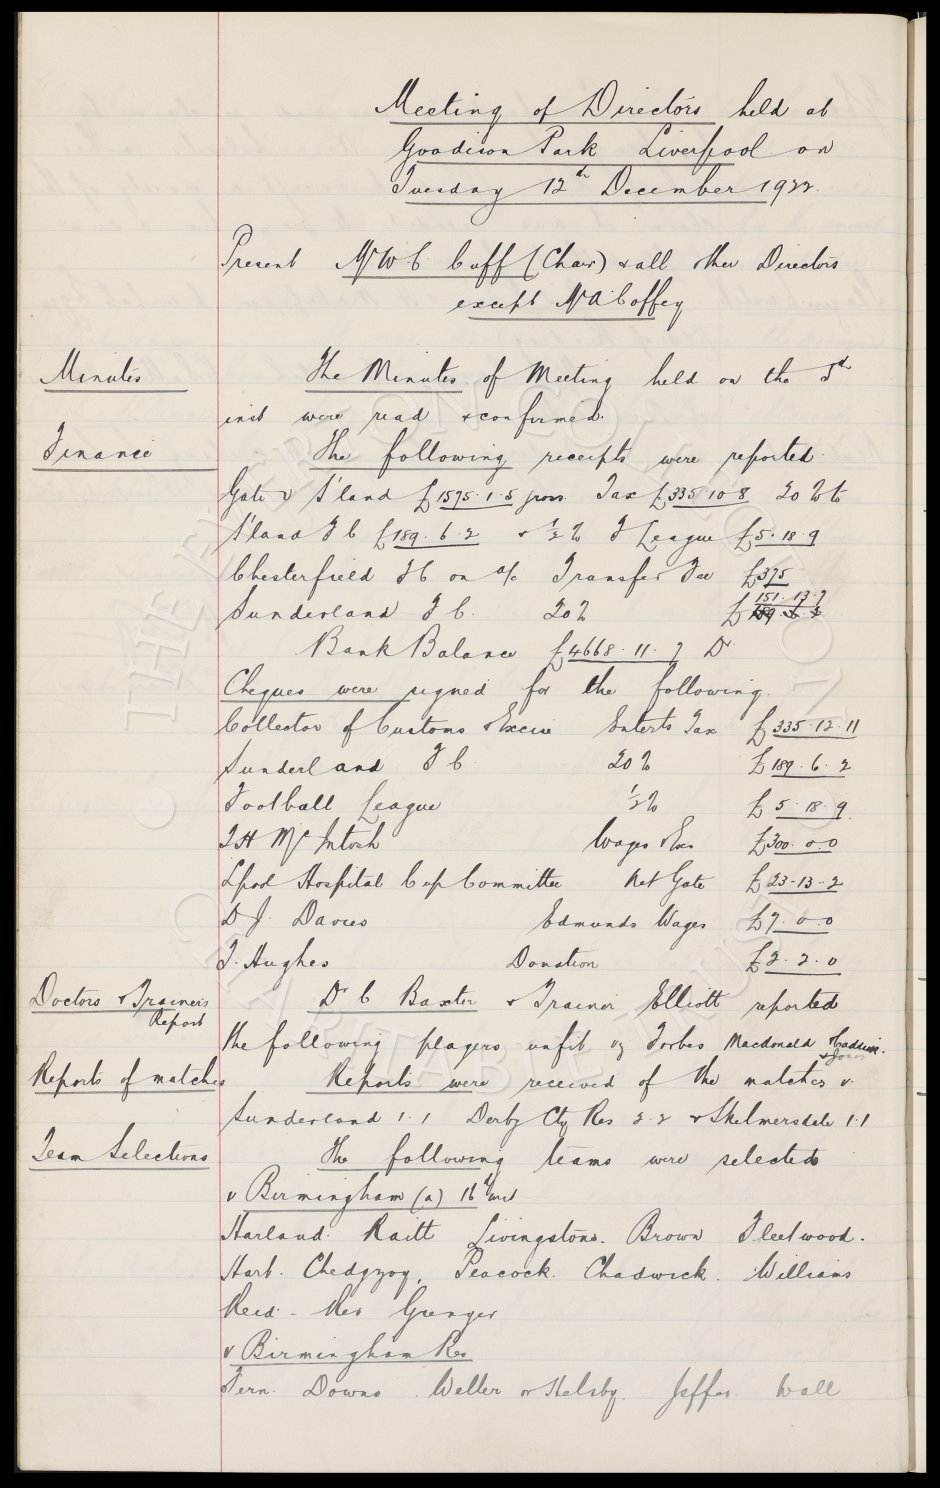 Meeting of Directors held at
Goodison Park Liverpool on
Tuesday 12th December 1922.
Present Mr W C Cuff (Chair) & all other Directors
except Mr A Coffey
Minutes
The Minutes of Meeting held on the 5th
inst were read & confirmed.
Finance
The following receipts were reported
Gate v S'land £1575.1.5 gross Tax £335.10.8 20% to
S'land F C £189.6.2 & ½% F League £5.18.9
Chesterfield F C on a/c Transfer Fee £375
Sunderland F C. 20% £151.13.7
Bank Balance £4668.11.7 Dr
Cheques were signed for the following.
Collector of Customs & Excise Enterts Tax £335.12.11
Sunderland F C 20% £189.6.2
Football League ½% £5.18.9
T H McIntosh Wages & Exes £300.0.0
Lpool Hospital Cup Committee Net Gate £23-13-2
D J. Davies Edmunds Wages £7.0.0
T. Hughes Donation £2.2.0
Doctors & Trainers
Report
Dr C Baxter & Trainer Elliott reported
the following players unfit vz Forbes Macdonald
& Jones
Reports of matches
Reports were received of the matches v.
Sunderland 1.1 Derby Cty Res 2.2 & Skelmersdale 1.1
Team Selections
The following teams were selected
v Birmingham (a) 16th inst
Harland. Raitt Livingstone. Brown Fleetwood.
Hart. Chedgzoy, Peacock. Chadwick. Williams
Reid - Res Grenyer
v Birmingham Res
Fern. Downs. Weller or Helsby. Jeffes. Wall
THE EVERTON COLLECTION
CHARITABLE TRUST